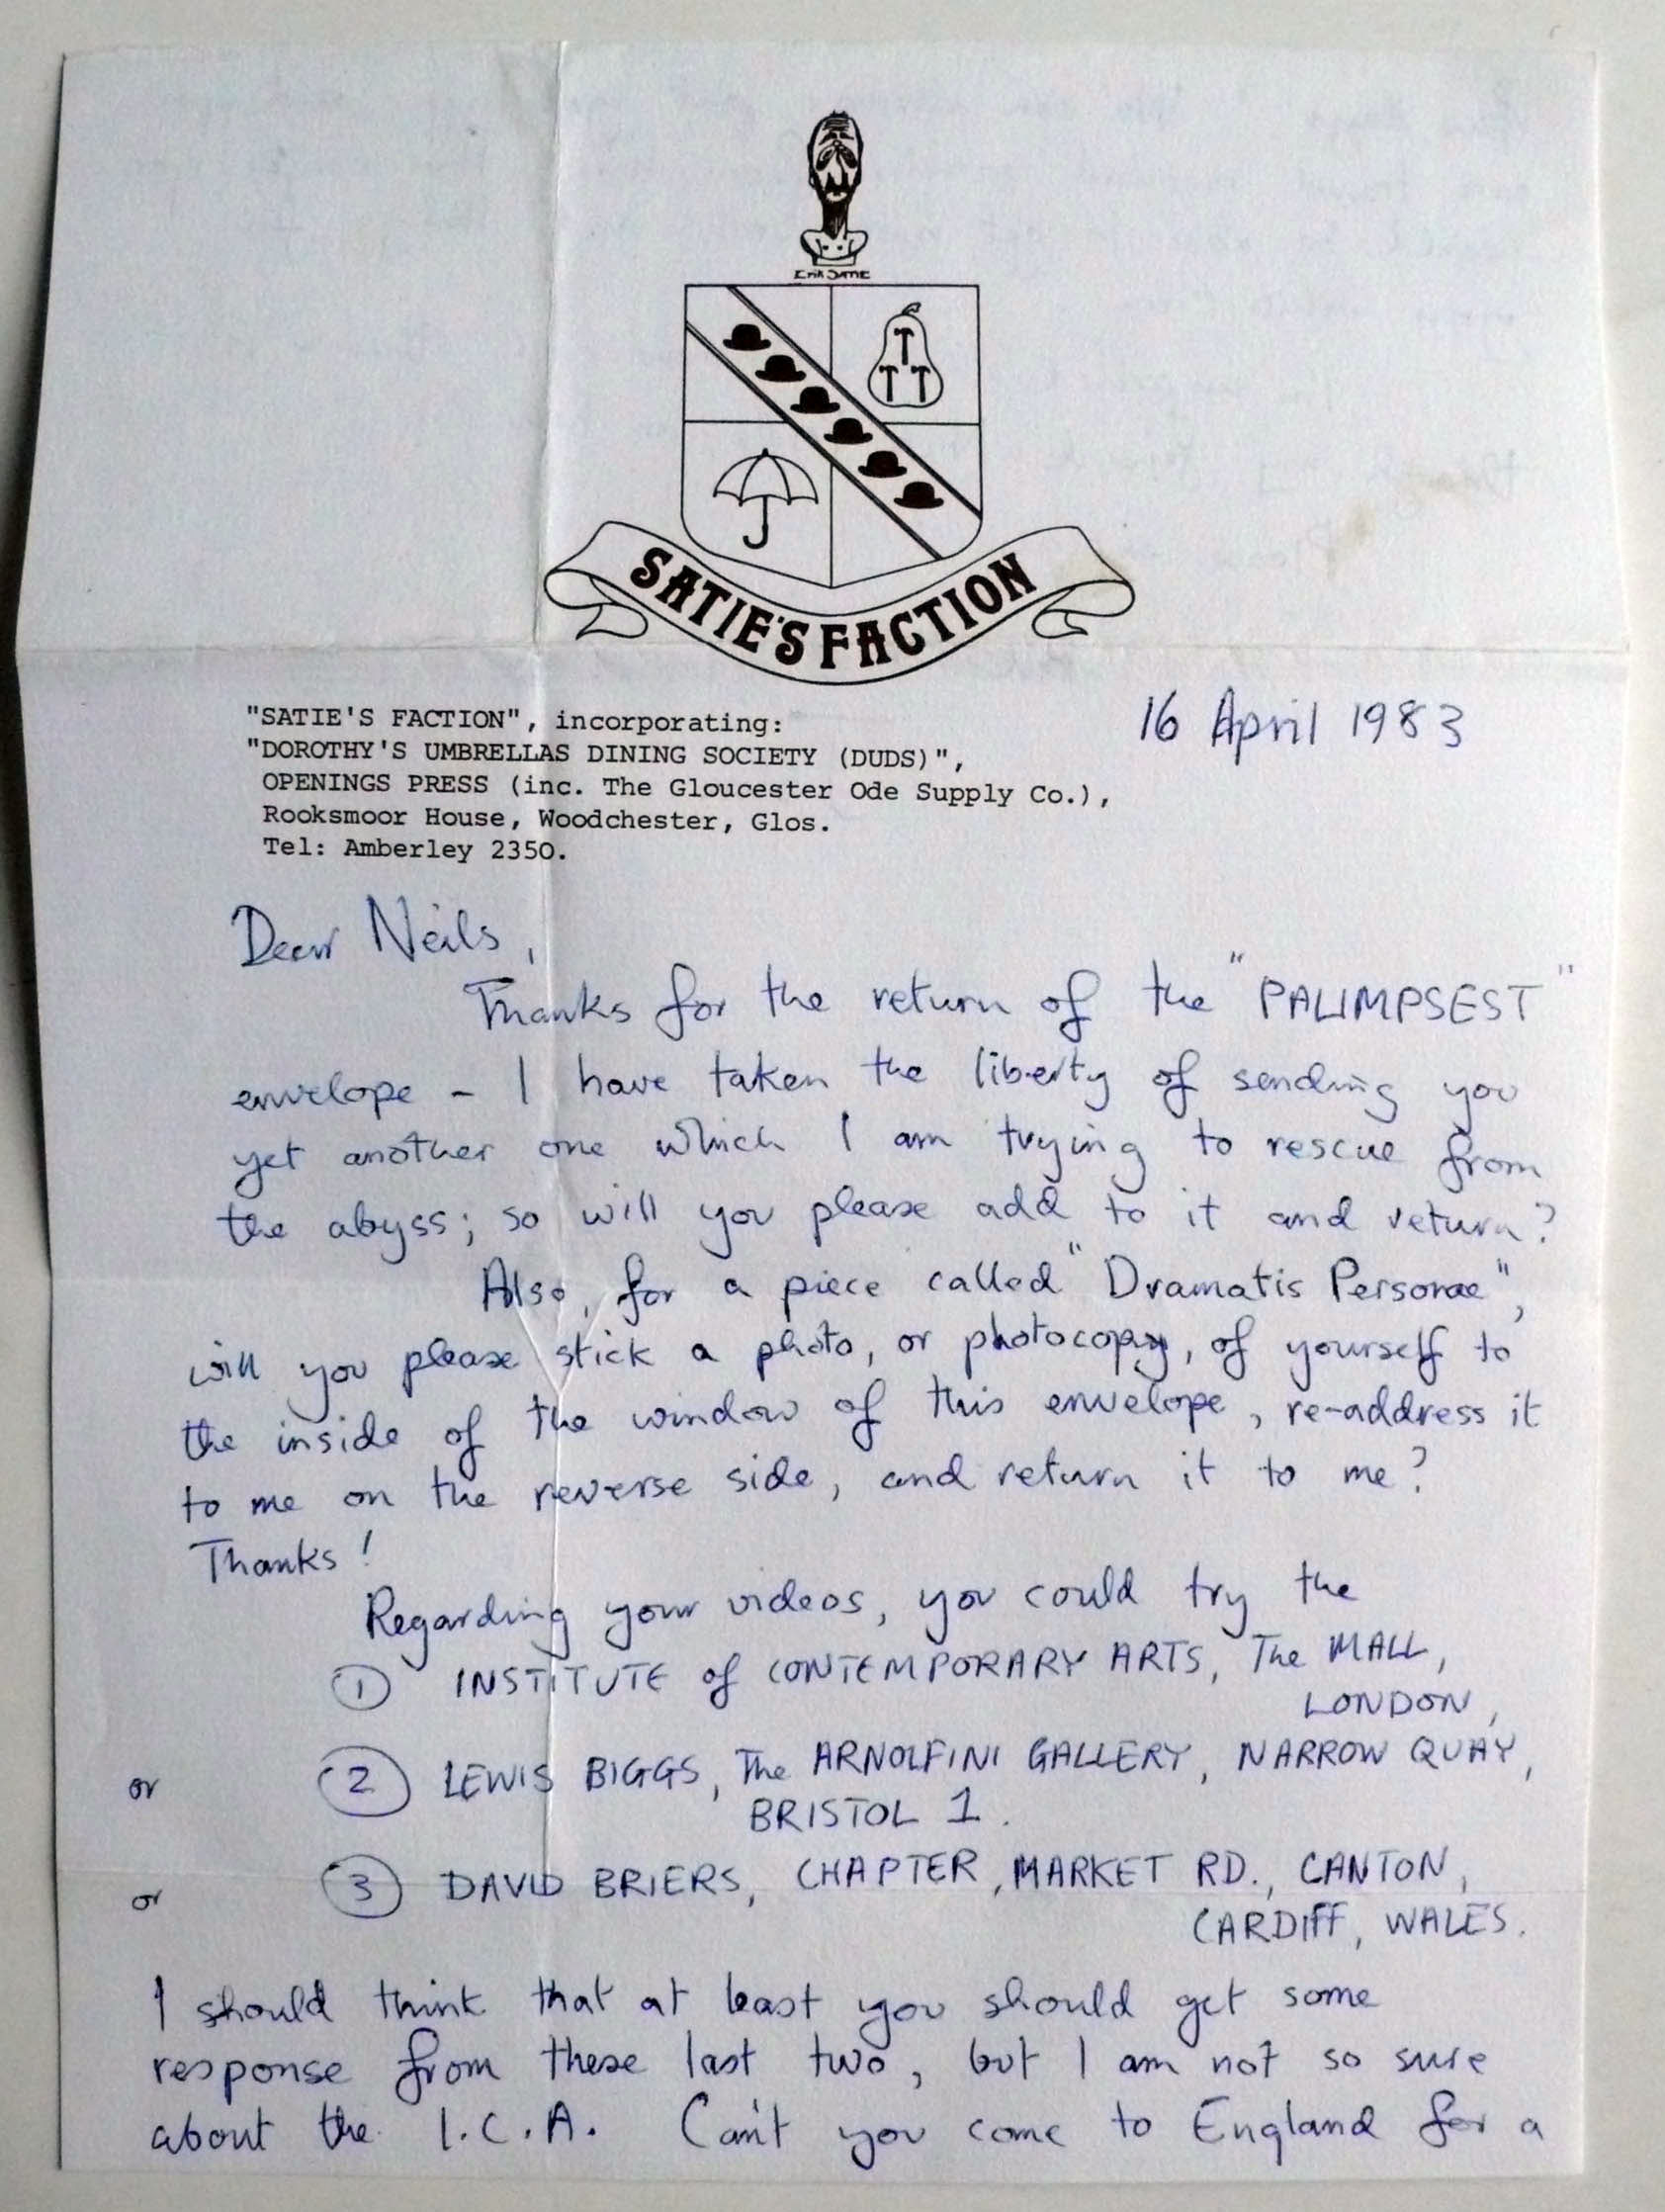 Erik SATIE
T
T T
SATIE'S FACTION
"SATIE'S FACTION", incorporating:
"DOROTHY'S UMBRELLAS DINING SOCIETY (DUDS)",
OPENINGS PRESS (inc. The Gloucester Ode Supply Co.),
Rooksmoor House, Woodchester, Glos.
Tel: Amberley 2350.
16 April 1983
Dear Neils,
Thanks for the return of the "PALIMPSEST"
envelope - I have taken the liberty of sending you
yet another one which I am trying to rescue from
the abyss; so will you please add to it and return?
Also, for a piece called "Dramatis Personae",
will you please stick a photo, or photocopy, of yourself to
the inside of the window of this envelope, re-address it
to me on the reverse side, and return it to me?
Thanks!
Regarding your videos, you could try the
1 INSTITUTE of CONTEMPORARY ARTS, The MALL,
LONDON,
or 2 LEWIS BIGGS, The ARNOLFINI GALLERY, NARROW QUAY,
BRISTOL 1.
or 3 DAVID BRIERS, CHAPTER, MARKET RD., CANTON,
CARDIFF, WALES.
I should think that at least you should get some
response from these last two, but I am not so sure
about the I.C.A. Can't you come to England for a